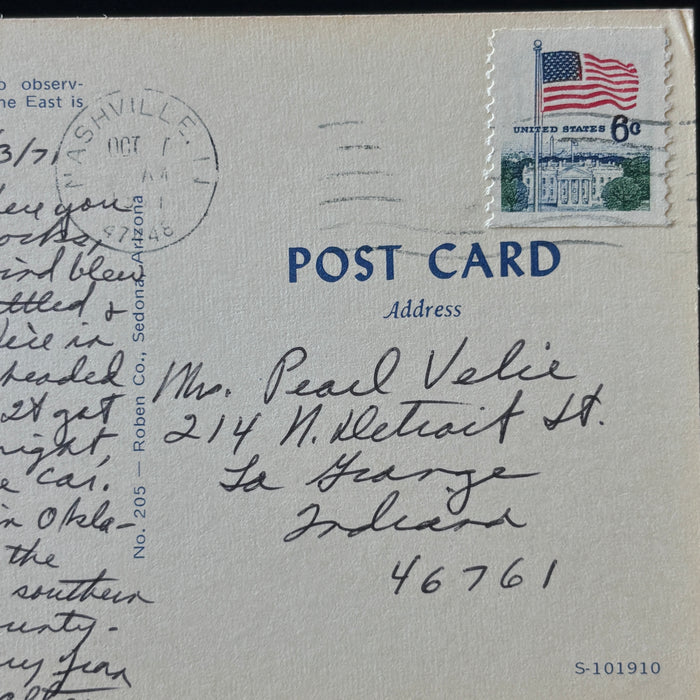 o observ-
he East is
3/71
NASHVILLE, IN
OCT 1
AM
47448
UNITED STATES 6¢
POST CARD
Address
Mrs. Pearl Velie
214 N. Detroit St.
La Grange
Indiana
46761
you
ocks,
ind blew
ttled &
in
headed
2x got
right,
e car.
in Okla-
the
southern
ounty.
No. 205 — Roben Co., Sedona, Arizona
S-101910